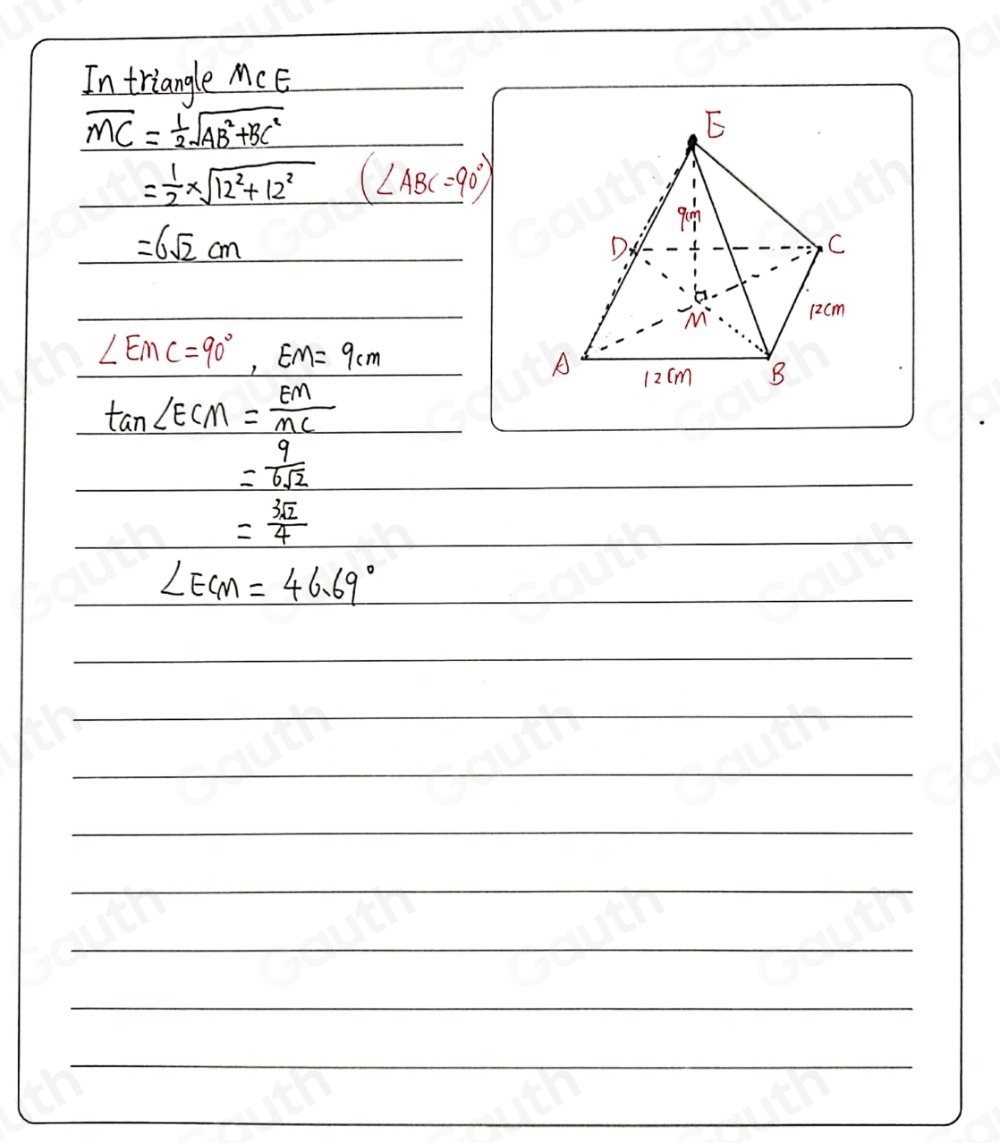 In triangle MCE
MC = 1/2√AB²+BC²
= 1/2 × √12²+12² (∠ABC=90°)
= 6√2 cm
∠EMC=90°, EM= 9cm
tan∠ECM = EM/MC
= 9/6√2
= 3√2/4
∠ECM = 46.69°
E
9cm
D
C
M
12cm
A
12cm
B
Gauth